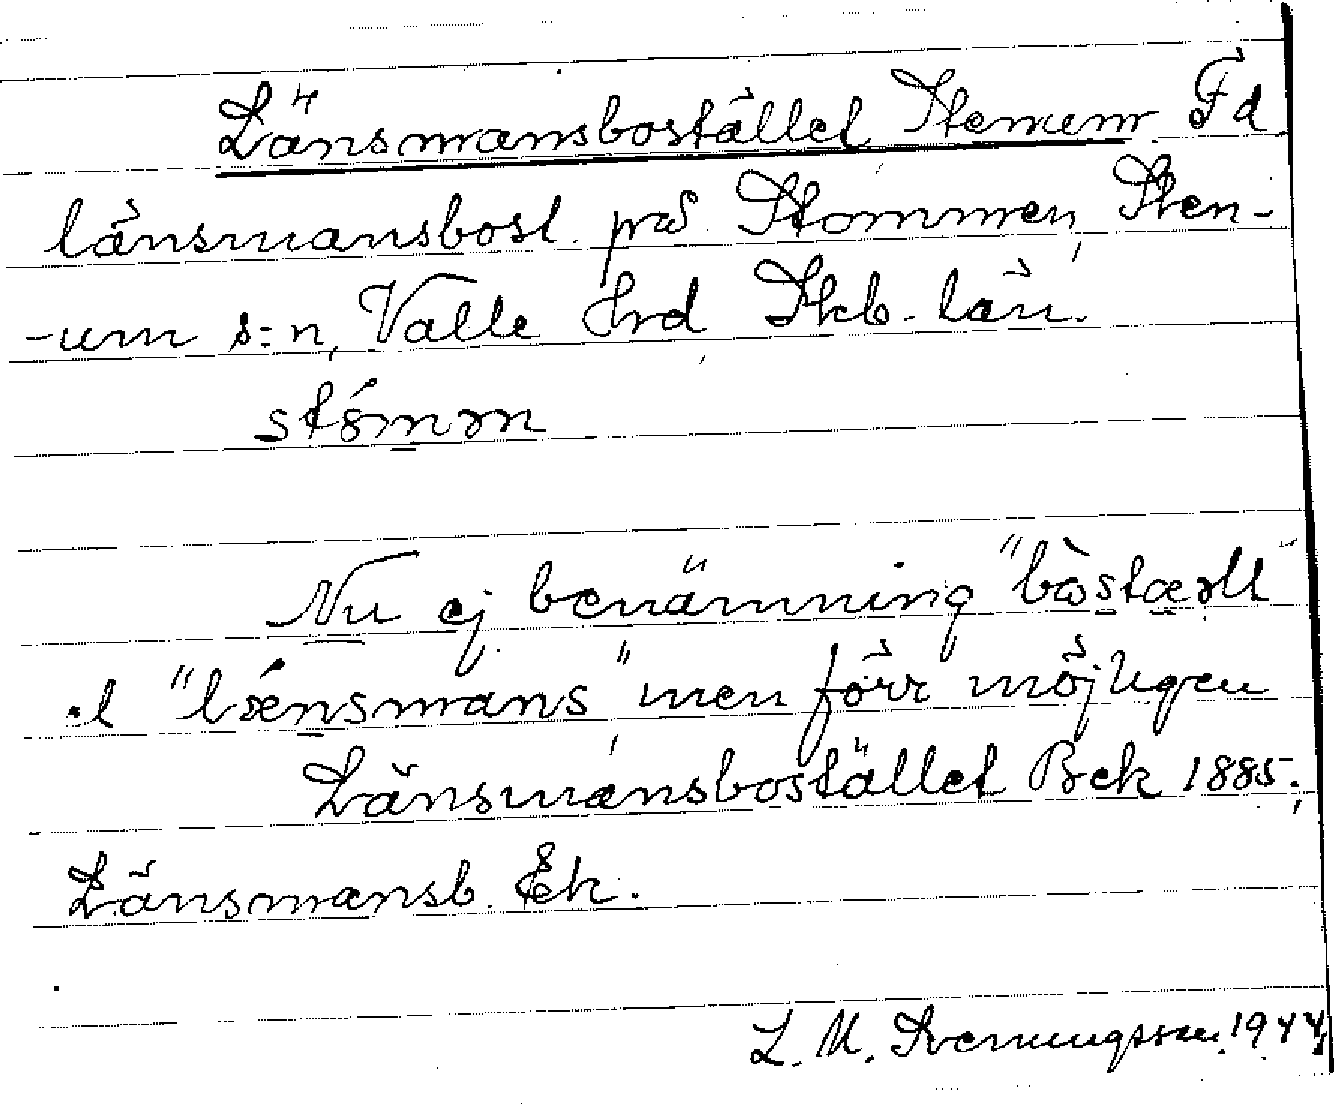 Länsmansbostället Stenum Fd
länsmansbost. på Stommen, Sten-
-um s:n, Valle Hrd Skb. län.
stómm
Nu ej benämning "bòstællt"
el "lǽnsmans" men förr möjligen
Länsmansbostället Bek 1885;
Länsmansb. Ek.
L. M. Svenungsson 1944